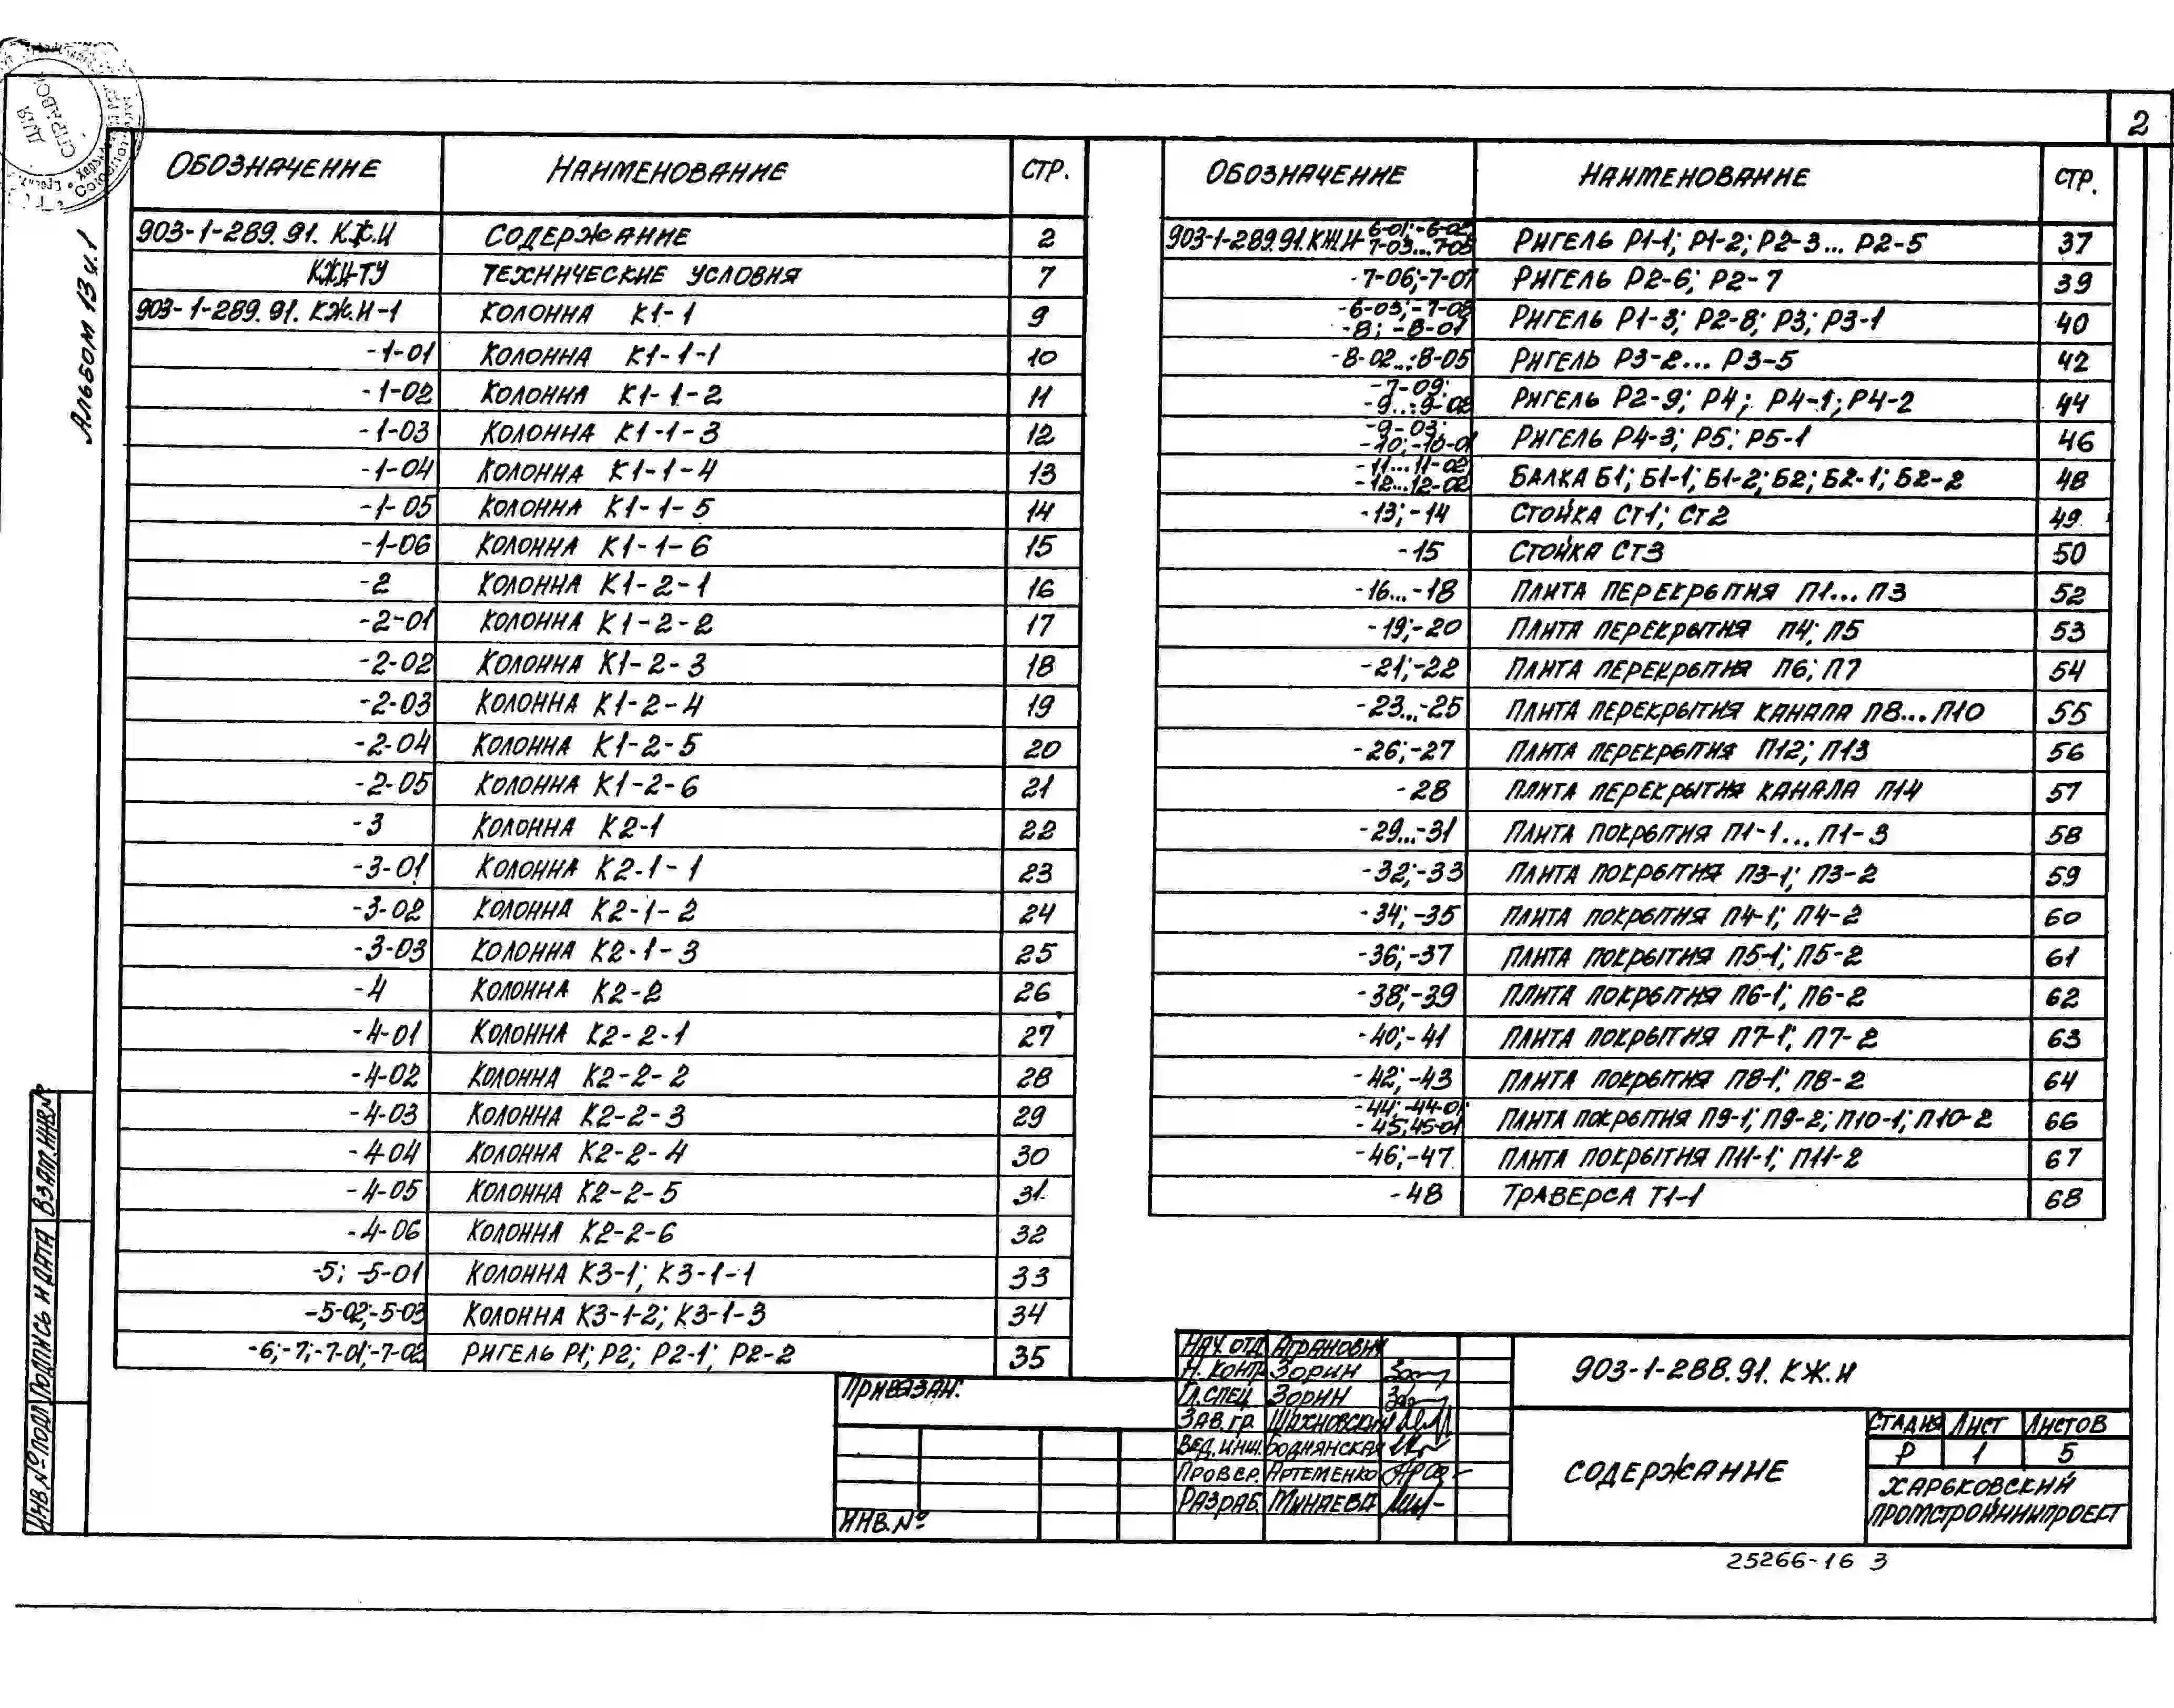 2
ДЛЯ
СПРАВОК
Альбом 13 ч.1
ОБОЗНАЧЕНИЕ НАИМЕНОВАНИЕ СТР.
903-1-289.91. КЖ.И СОДЕРЖАНИЕ 2
КЖИ-ТУ ТЕХНИЧЕСКИЕ УСЛОВИЯ 7
903-1-289.91. КЖ.И-1 КОЛОННА К1-1 9
-1-01 КОЛОННА К1-1-1 10
-1-02 КОЛОННА К1-1-2 11
-1-03 КОЛОННА К1-1-3 12
-1-04 КОЛОННА К1-1-4 13
-1-05 КОЛОННА К1-1-5 14
-1-06 КОЛОННА К1-1-6 15
-2 КОЛОННА К1-2-1 16
-2-01 КОЛОННА К1-2-2 17
-2-02 КОЛОННА К1-2-3 18
-2-03 КОЛОННА К1-2-4 19
-2-04 КОЛОННА К1-2-5 20
-2-05 КОЛОННА К1-2-6 21
-3 КОЛОННА К2-1 22
-3-01 КОЛОННА К2-1-1 23
-3-02 КОЛОННА К2-1-2 24
-3-03 КОЛОННА К2-1-3 25
-4 КОЛОННА К2-2 26
-4-01 КОЛОННА К2-2-1 27
-4-02 КОЛОННА К2-2-2 28
-4-03 КОЛОННА К2-2-3 29
-4-04 КОЛОННА К2-2-4 30
-4-05 КОЛОННА К2-2-5 31
-4-06 КОЛОННА К2-2-6 32
-5; -5-01 КОЛОННА К3-1; К3-1-1 33
-5-02;-5-03 КОЛОННА К3-1-2; К3-1-3 34
-6;-7;-7-01;-7-02 РИГЕЛЬ Р1; Р2; Р2-1; Р2-2 35
ОБОЗНАЧЕНИЕ НАИМЕНОВАНИЕ СТР.
903-1-289.91.КЖ.И-6-01;-6-02; 7-03...7-05 РИГЕЛЬ Р1-1; Р1-2; Р2-3... Р2-5 37
-7-06;-7-07 РИГЕЛЬ Р2-6; Р2-7 39
-6-03;-7-08 -8; -8-01 РИГЕЛЬ Р1-3; Р2-8; Р3; Р3-1 40
-8-02...-8-05 РИГЕЛЬ Р3-2... Р3-5 42
-7-09; -9...-9-02 РИГЕЛЬ Р2-9; Р4; Р4-1; Р4-2 44
-9-03; -10;-10-01 РИГЕЛЬ Р4-3; Р5; Р5-1 46
-11...11-02; -12...12-02 БАЛКА Б1; Б1-1; Б1-2; Б2; Б2-1; Б2-2 48
-13;-14 СТОЙКА СТ1; СТ2 49
-15 СТОЙКА СТ3 50
-16...-18 ПЛИТА ПЕРЕКРЫТИЯ П1... П3 52
-19;-20 ПЛИТА ПЕРЕКРЫТИЯ П4; П5 53
-21;-22 ПЛИТА ПЕРЕКРЫТИЯ П6; П7 54
-23...-25 ПЛИТА ПЕРЕКРЫТИЯ КАНАЛА П8... П10 55
-26;-27 ПЛИТА ПЕРЕКРЫТИЯ П12; П13 56
-28 ПЛИТА ПЕРЕКРЫТИЯ КАНАЛА П14 57
-29...-31 ПЛИТА ПОКРЫТИЯ П1-1... П1-3 58
-32;-33 ПЛИТА ПОКРЫТИЯ П3-1; П3-2 59
-34; -35 ПЛИТА ПОКРЫТИЯ П4-1; П4-2 60
-36;-37 ПЛИТА ПОКРЫТИЯ П5-1; П5-2 61
-38;-39 ПЛИТА ПОКРЫТИЯ П6-1; П6-2 62
-40;-41 ПЛИТА ПОКРЫТИЯ П7-1; П7-2 63
-42; -43 ПЛИТА ПОКРЫТИЯ П8-1; П8-2 64
-44; -44-01; -45;45-01 ПЛИТА ПОКРЫТИЯ П9-1; П9-2; П10-1; П10-2 66
-46;-47 ПЛИТА ПОКРЫТИЯ П11-1; П11-2 67
-48 ТРАВЕРСА Т1-1 68
ИНВ.№ ПОДЛ ПОДПИСЬ И ДАТА ВЗАМ.ИНВ.№
ПРИВЯЗАН:
ИНВ.№
НАЧ. ОТД. АГРАНОВИЧ
Н. КОНТР. ЗОРИН
ГЛ.СПЕЦ. ЗОРИН
ЗАВ. ГР. ШАХНОВСКИЙ
ВЕД. ИНЖ. БОДНЯНСКАЯ
ПРОВЕР. АРТЕМЕНКО
РАЗРАБ. МИНАЕВА
903-1-288.91. КЖ.И
СОДЕРЖАНИЕ
СТАДИЯ ЛИСТ ЛИСТОВ
Р 1 5
ХАРЬКОВСКИЙ
ПРОМСТРОЙНИИПРОЕКТ
25266-16 3